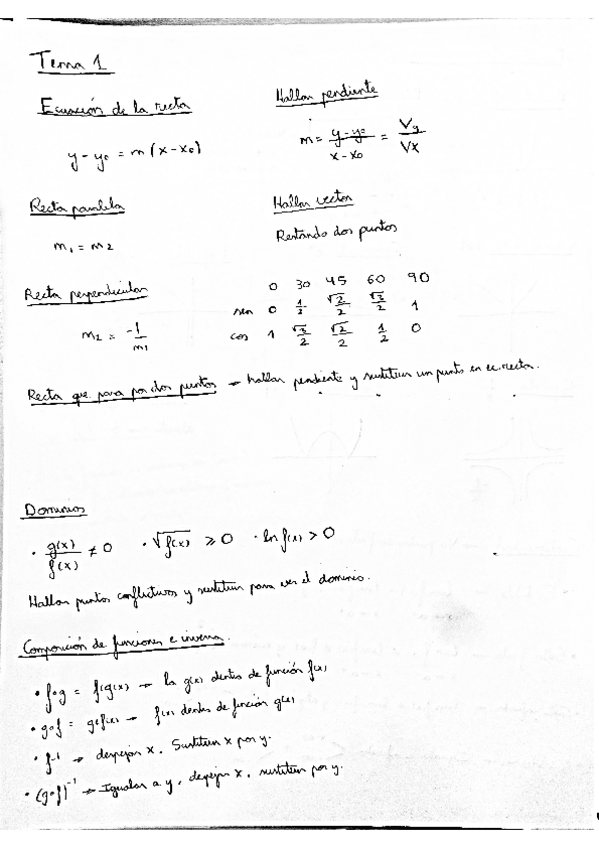 Tema 1
Ecuación de la recta
y - y₀ = m (x - x₀)
Hallar pendiente
m = y - y₀ / x - x₀ = Vy / Vx
Recta paralela
m₁ = m₂
Hallar vector
Restando dos puntos
Recta perpendicular
m₂ = -1 / m₁
0 30 45 60 90
sen 0 1/2 √2/2 √3/2 1
cos 1 √3/2 √2/2 1/2 0
Recta que pasa por dos puntos → hallar pendiente y sustituir un punto en ec. recta.
Dominios
· g(x) / f(x) ≠ 0 · √f(x) ≥ 0 · ln f(x) > 0
Hallar puntos conflictivos y sustituir para ver el dominio.
Composición de funciones e inversa.
• f∘g = f(g(x) → la g(x) dentro de función f(x)
• g∘f = g(f(x) → f(x) dentro de función g(x)
• f⁻¹ → despejar x. Sustituir x por y.
• (g∘f)⁻¹ → Igualar a y, despejar x, sustituir por y.